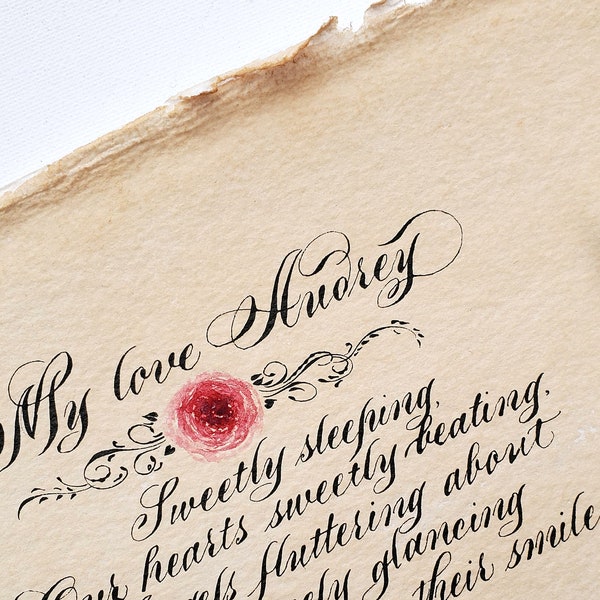 My love Audrey
Sweetly sleeping,
Our hearts sweetly beating,
fluttering about
glancing
their smile